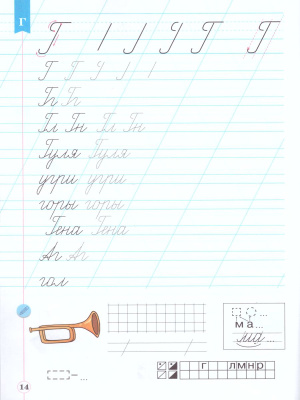 Г
Г Г Г
Г Г
Гл Гн Гл Гн
Гуля Гуля
угри угри
горы горы
Гена Гена
Аг Аг
гол
ма...
ма...
- ...
г лмнр
14